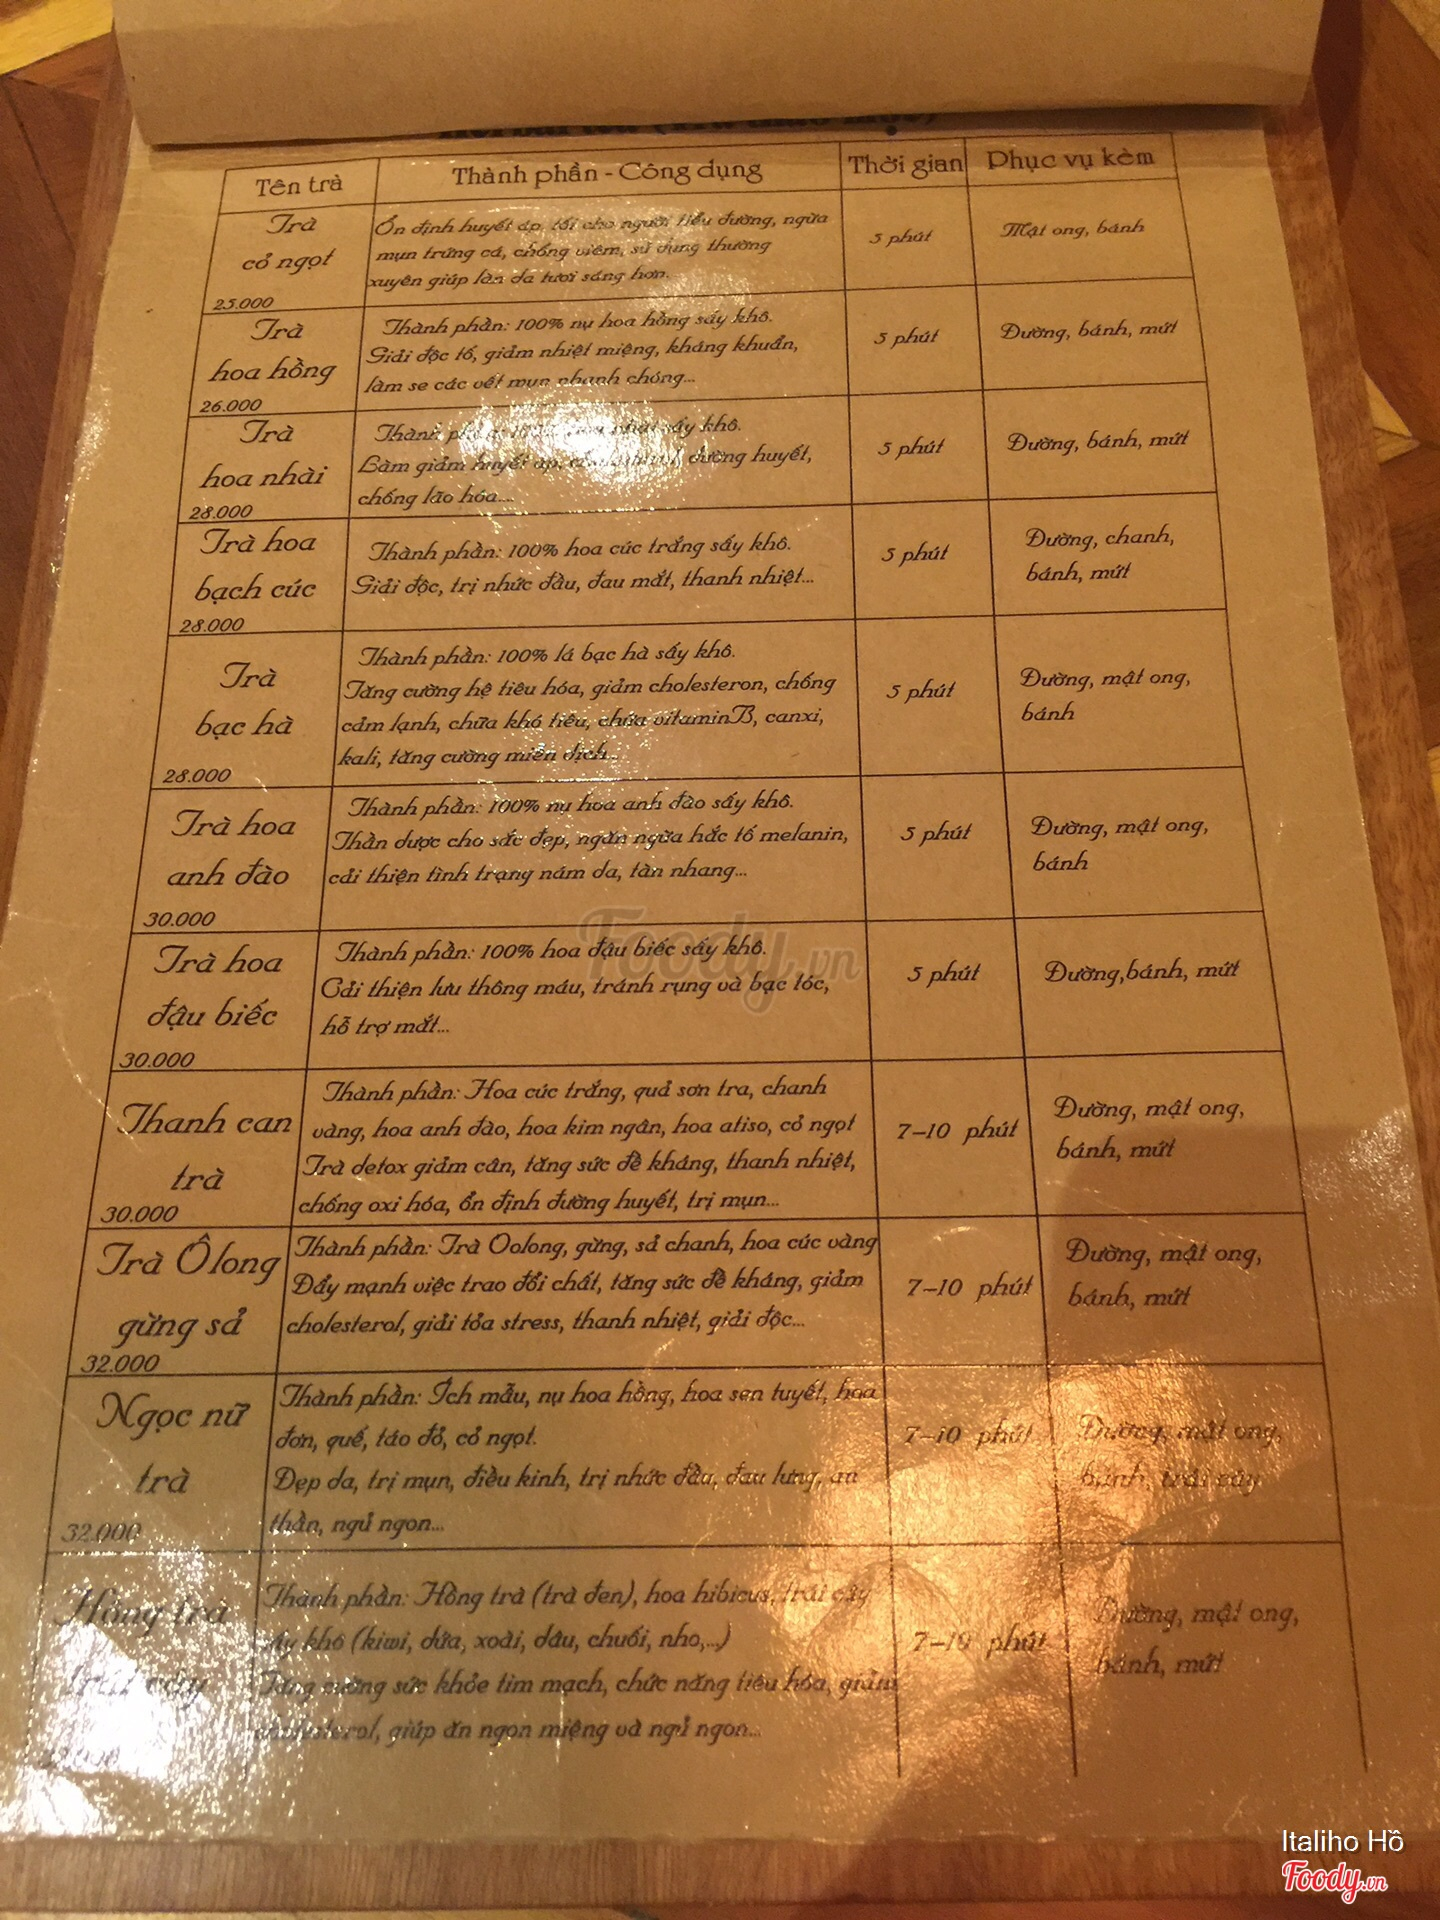 Tên trà
Thành phần - Công dụng
Thời gian
Phục vụ kèm
Trà
cỏ ngọt
25.000
Ổn định huyết áp, tốt cho người tiểu đường, ngừa
mụn trứng cá, chống viêm, sử dụng thường
xuyên giúp làn da tươi sáng hơn...
5 phút
Mật ong, bánh
Trà
hoa hồng
26.000
Thành phần: 100% nụ hoa hồng sấy khô.
Giải độc tố, giảm nhiệt miệng, kháng khuẩn,
làm se các vết mụn nhanh chóng...
5 phút
Đường, bánh, mứt
Trà
hoa nhài
28.000
Thành phần: 100% hoa nhài sấy khô.
Làm giảm huyết áp, cholesterol, đường huyết,
chống lão hóa...
5 phút
Đường, bánh, mứt
Trà hoa
bạch cúc
28.000
Thành phần: 100% hoa cúc trắng sấy khô.
Giải độc, trị nhức đầu, đau mắt, thanh nhiệt...
5 phút
Đường, chanh,
bánh, mứt
Trà
bạc hà
28.000
Thành phần: 100% lá bạc hà sấy khô.
Tăng cường hệ tiêu hóa, giảm cholesteron, chống
cảm lạnh, chữa khó tiêu, chứa vitaminB, canxi,
kali, tăng cường miễn dịch...
5 phút
Đường, mật ong,
bánh
Trà hoa
anh đào
30.000
Thành phần: 100% nụ hoa anh đào sấy khô.
Thần dược cho sắc đẹp, ngăn ngừa hắc tố melanin,
cải thiện tình trạng nám da, tàn nhang...
5 phút
Đường, mật ong,
bánh
Trà hoa
đậu biếc
30.000
Thành phần: 100% hoa đậu biếc sấy khô.
Cải thiện lưu thông máu, tránh rụng và bạc tóc,
hỗ trợ mắt...
5 phút
Đường,bánh, mứt
Thanh can
trà
30.000
Thành phần: Hoa cúc trắng, quả sơn tra, chanh
vàng, hoa anh đào, hoa kim ngân, hoa atiso, cỏ ngọt
Trà detox giảm cân, tăng sức đề kháng, thanh nhiệt,
chống oxi hóa, ổn định đường huyết, trị mụn...
7-10 phút
Đường, mật ong,
bánh, mứt
Trà Ôlong
gừng sả
32.000
Thành phần: Trà Oolong, gừng, sả chanh, hoa cúc vàng
Đẩy mạnh việc trao đổi chất, tăng sức đề kháng, giảm
cholesterol, giải tỏa stress, thanh nhiệt, giải độc...
7-10 phút
Đường, mật ong,
bánh, mứt
Ngọc nữ
trà
32.000
Thành phần: Ích mẫu, nụ hoa hồng, hoa sen tuyết, hoa
đơn, quế, táo đỏ, cỏ ngọt.
Đẹp da, trị mụn, điều kinh, trị nhức đầu, đau lưng, an
thần, ngủ ngon...
7-10 phút
Đường, mật ong,
bánh, trái cây
Hồng trà
trái cây
Thành phần: Hồng trà (trà đen), hoa hibicus, trái cây
sấy khô (kiwi, dứa, xoài, dâu, chuối, nho,...)
Tăng cường sức khỏe tim mạch, chức năng tiêu hóa, giảm
cholesterol, giúp ăn ngon miệng và ngủ ngon...
7-10 phút
Đường, mật ong,
bánh, mứt
Foody.vn
Italiho Hồ
Foody.vn